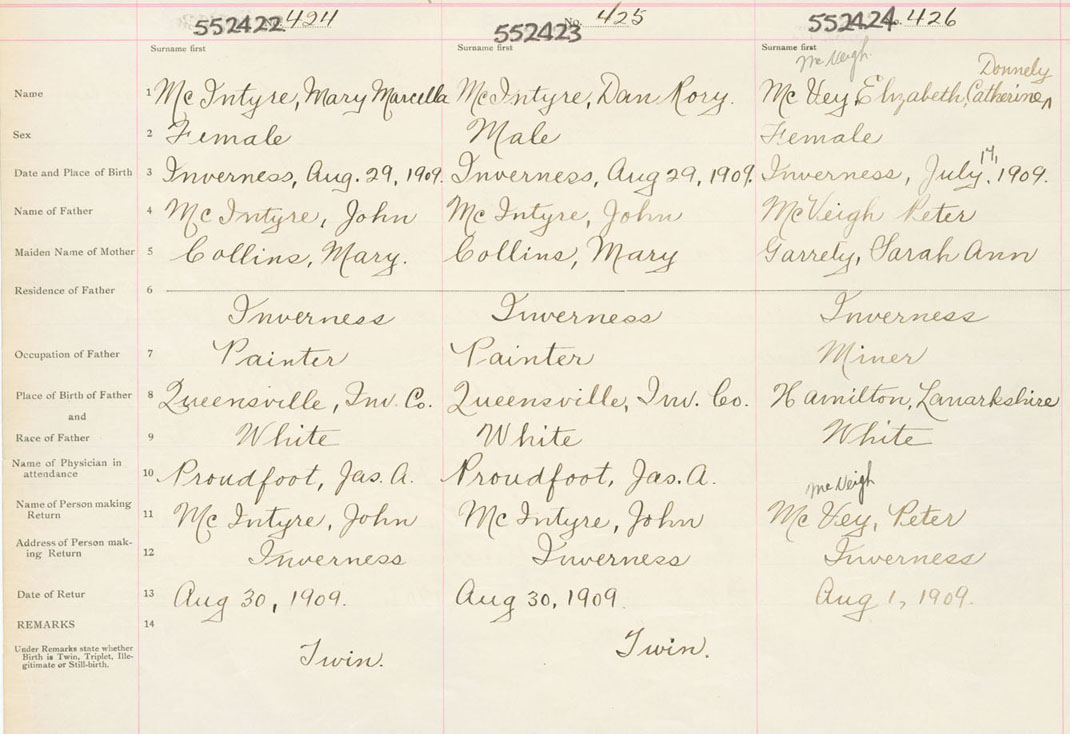 552422 No. 424 552423 No. 425 552424 No. 426
Surname first Surname first Surname first
McVeigh
Donnely
Name 1 McIntyre, Mary Marcella McIntyre, Dan Rory. McVey, Elizabeth, Catherine,
Sex 2 Female Male Female
Date and Place of Birth 3 Inverness, Aug. 29, 1909. Inverness, Aug 29, 1909. Inverness, July, 17, 1909.
Name of Father 4 McIntyre, John McIntyre, John McVeigh Peter
Maiden Name of Mother 5 Collins, Mary. Collins, Mary Garrety, Sarah Ann
Residence of Father 6
Inverness Inverness Inverness
Occupation of Father 7 Painter Painter Miner
Place of Birth of Father 8 Queensville, Inv. Co. Queensville, Inv. Co. Hamilton, Lanarkshire
and
Race of Father 9 White White White
Name of Physician in
attendance 10 Proudfoot, Jas. A. Proudfoot, Jas. A.
McVeigh
Name of Person making
Return 11 McIntyre, John McIntyre, John McVey, Peter
Address of Person mak-
ing Return 12 Inverness Inverness Inverness
Date of Retur 13 Aug 30, 1909. Aug 30, 1909. Aug 1, 1909.
REMARKS 14
Under Remarks state whether
Birth is Twin, Triplet, Ille-
gitimate or Still-birth.
Twin. Twin.